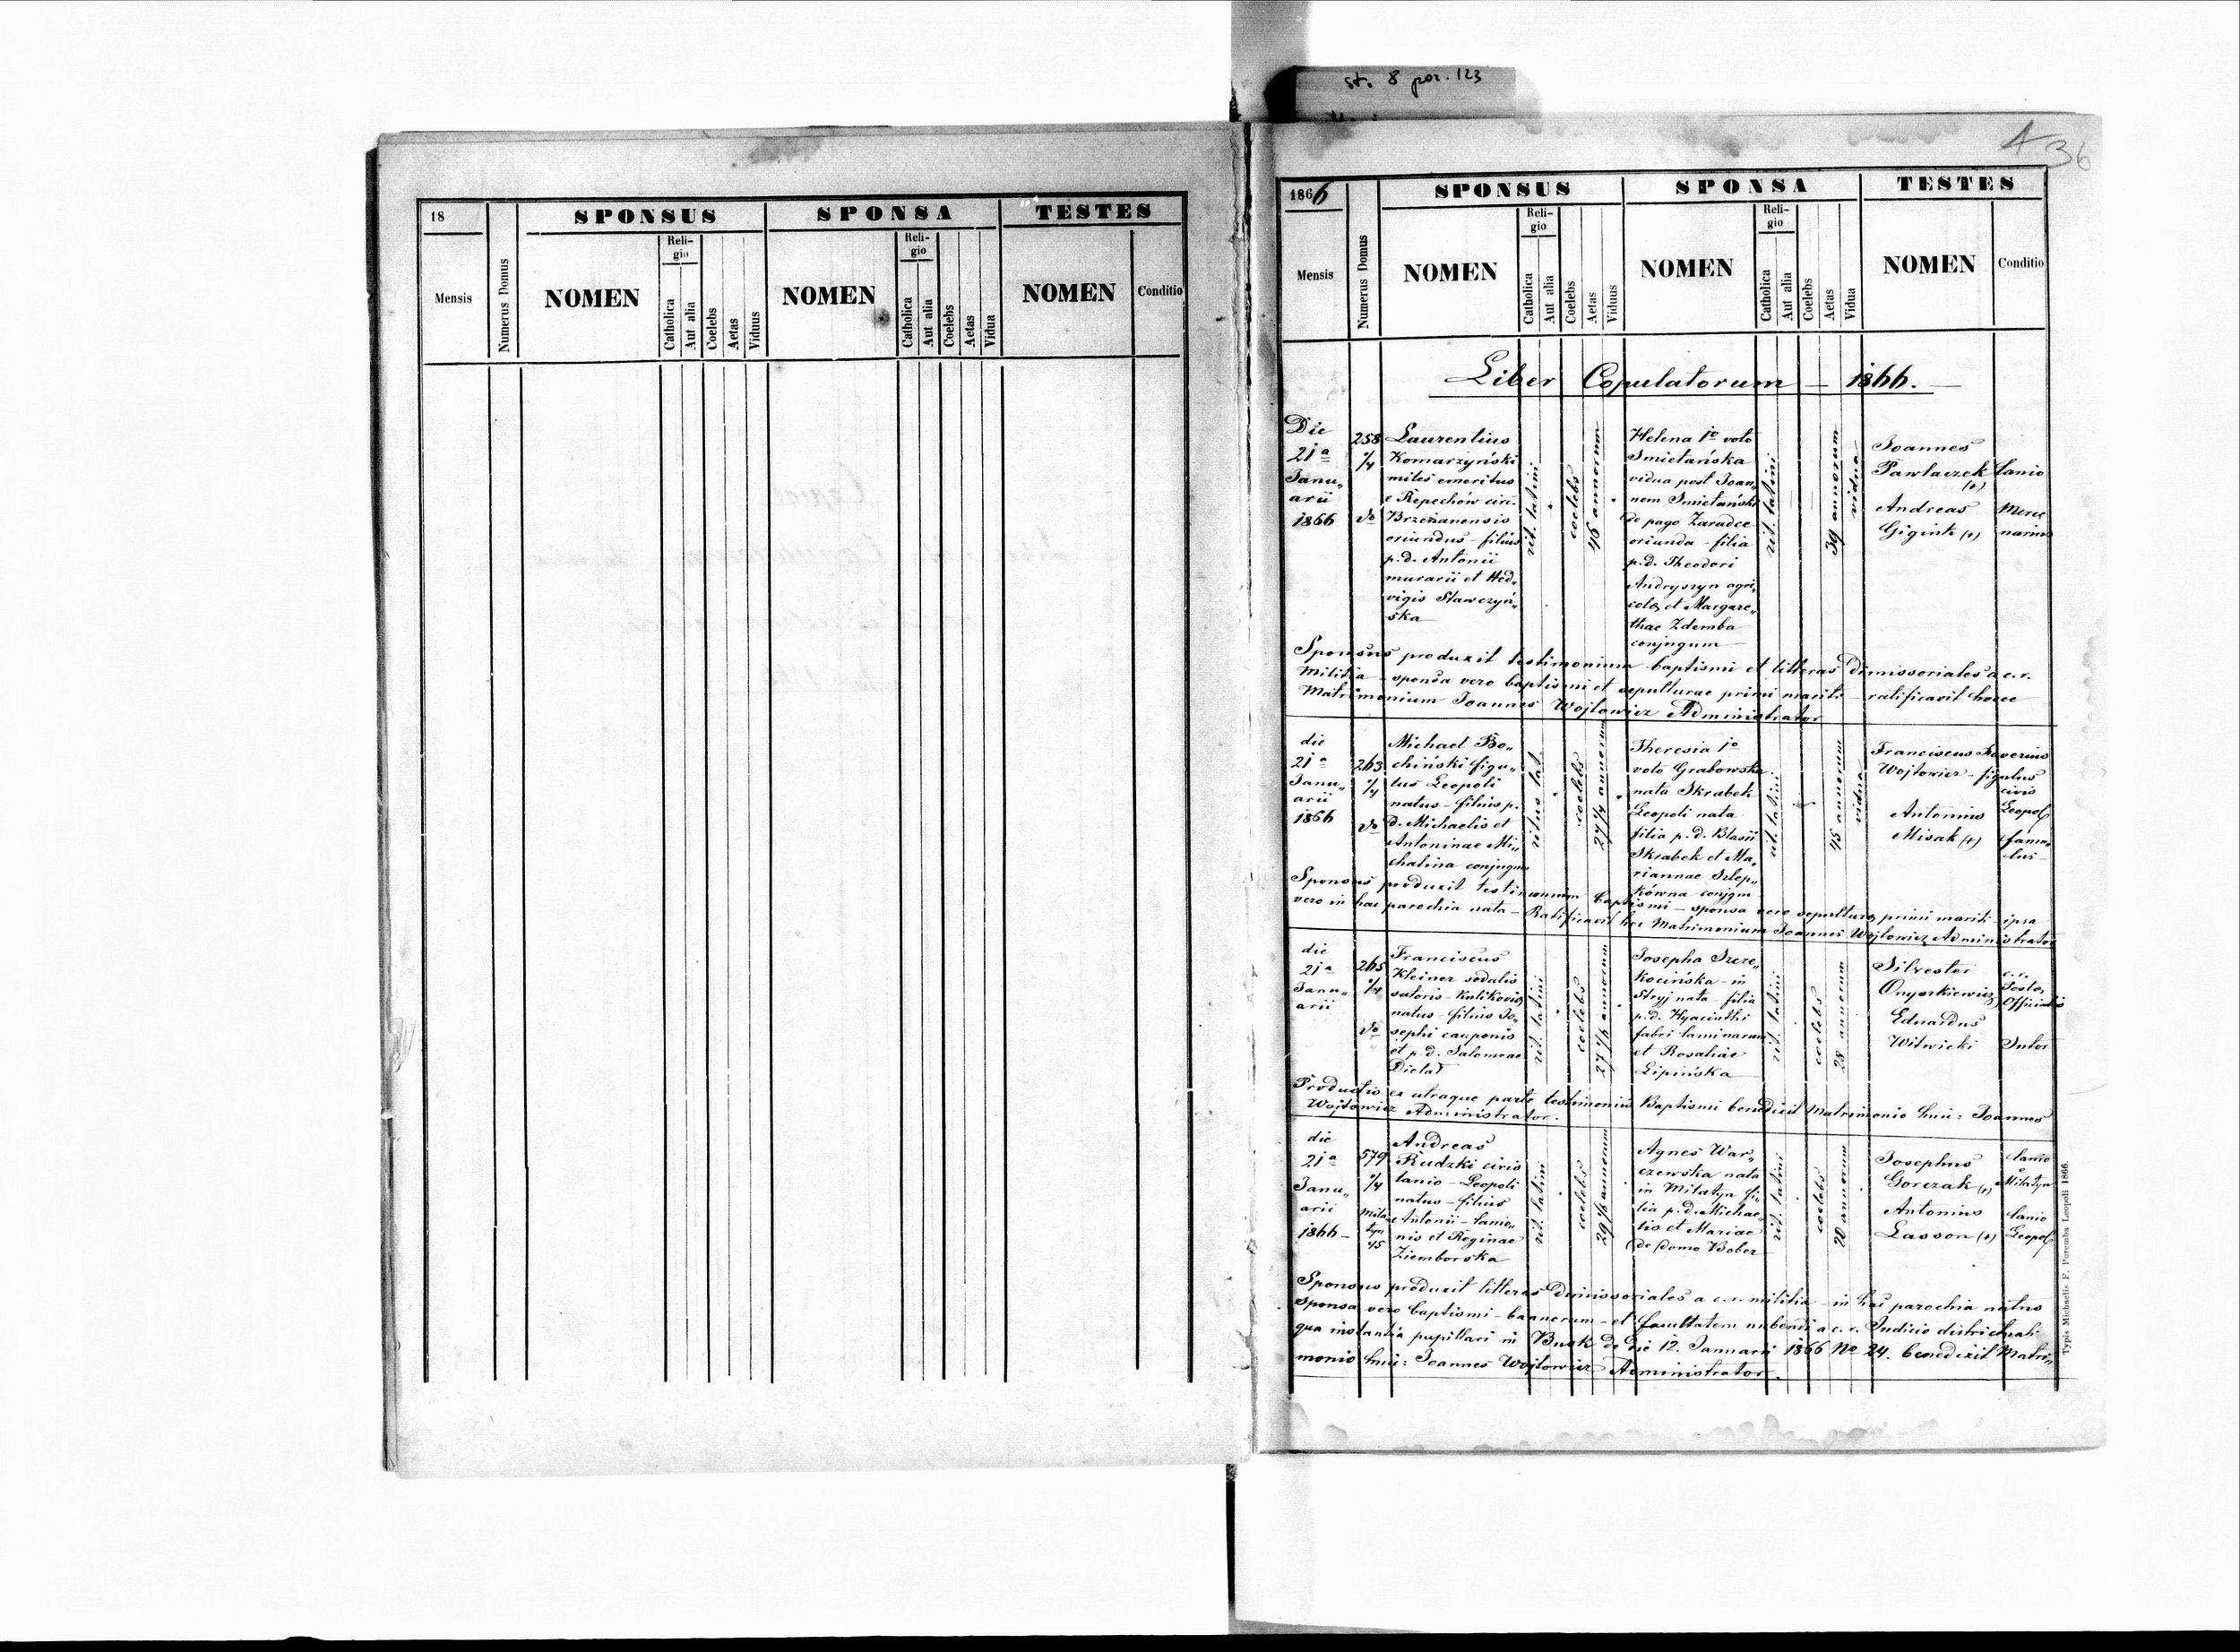 st. 8 poz. 123
18
SPONSUS
SPONSA
TESTES
Mensis
Numerus Domus
NOMEN
Reli-
gio
Catholica
Aut alia
Coelebs
Aetas
Viduus
NOMEN
Reli-
gio
Catholica
Aut alia
Coelebs
Aetas
Vidua
NOMEN
Conditio
36
1866
SPONSUS
SPONSA
TESTES
Mensis
Numerus Domus
NOMEN
Reli-
gio
Catholica
Aut alia
Coelebs
Aetas
Viduus
NOMEN
Reli-
gio
Catholica
Aut alia
Coelebs
Aetas
Vidua
NOMEN
Conditio
Liber Copulatorum – 1866. –
Die
21a
Janu„
arii
1866
258
2/4
do
Laurentius
Komarzyński
miles emeritus
e Repechów circ.
Brzezanensis
oriundus – filius
p. d. Antonii
murarii et Hed„
vigis Sławczyń„
ska
rit. latini
coelebs
45 annorum
Helena 1o voto
Smietańska
vidua post Joan„
nem Smietański
de pago Zarudce
orianda – filia
p. d. Theodori
Andryszyn agri„
colae et Margare„
thae Zdemba
conjugum
rit. latini
39 annorum
vidua
Joannes
Pawlaczek
(+)
lanio
Andreas
Gigink (+)
Merce
narius
Sponsus produxit testimonium baptismi et litteras dimissoriales a c. r.
Militia – sponsa vero baptismi et sepulturae primi mariti – ratificavit hocce
Matrimonium Joannes Wojtowicz Administrator
die
21a
Janu„
arii
1866
263
2/4
do
Michael Bo„
chiński figu„
lus Leopoli
natus – filius p.
d. Michaelis et
Antoninae Mi„
chalina conjugum
ritus lat.
coelebs
27 1/4 annorum
Theresia 1o
voto Grabowska
nata Skrabek
Leopoli nata
filia p. d. Blasii
Skrabek et Ma„
riannae Szlep„
kówna conjgm
rit. latini
45 annorum
vidua
Franciscus Xaverius
Wojtowicz – figulus
civis
Leopol
Antonius
Misak (+)
famu„
lus –
Sponsus produxit testimonium baptismi – sponsa vero sepulturae primi mariti – ipsa
vero in hac parochia nata – Ratificavit hoc Matrimonium Joannes Wojtowicz Administrator
die
21a
Janu„
arii
265
2/4
do
Franciscus
Kleiner sodalis
sutoris – Kulikoviae
natus – filius Jo„
sephi cauponis
et p. d. Salomeae
Dictat
rit. latini
coelebs
27 1/2 annorum
Josepha Szcze„
kocińska – in
Stryj nata – filia
p. d. Hyacinthi
fabri laminarum
et Rosaliae
Lipińska
rit. latini
coelebs
28 annorum
Silvester
Onyszkiewicz
c. r.
Officialis
Eduardus
Witwicki
Sutor
Productis ex utraque parte testimoniis Baptismi benedixit Matrimonio huic: Joannes
Wojtowicz Administrator.
die
21a
Janu„
arii
1866 –
579
2/4
Mila
tyn
45
Andreas
Rudzki civis
lanio – Leopoli
natus – filius
Antonii – lanio„
nis et Reginae
Ziemborska
rit. latini
coelebs
29 1/2 annorum
Agnes War„
czewska nata
in Milatyn fi„
lia p. d. Michae„
lis et Mariae
de domo Bober
rit. latini
coelebs
20 annorum
Josephus
Gorczak (+)
lanio
e
Milatyn
Antonius
Lasson (+)
lanio
Leopol
Sponsus produxit litteras dimissoriales a c. r. militia – in hac parochia natus
sponsa vero baptismi – bannorum – et facultatem nubendi a c. r. Judicio districtuali
qua instantia pupillari in Busk de die 12. Januarii 1866 No 24. benedixit Matri„
monio huic: Joannes Wojtowicz Administrator.
Typis Michaelis F. Poremba Leopoli 1866.